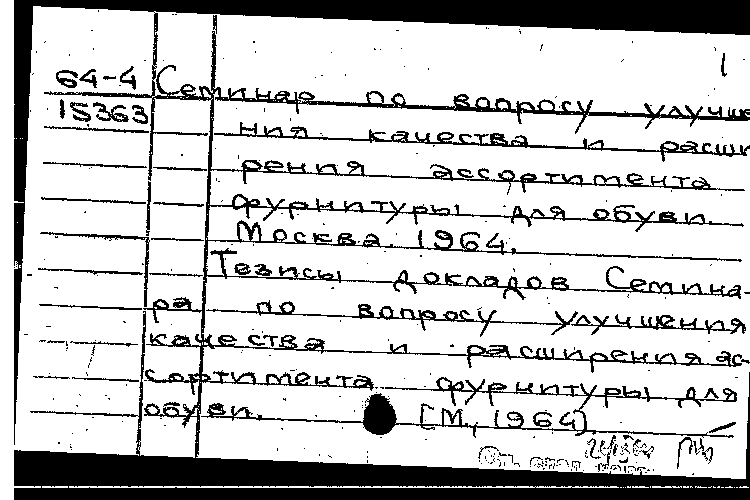 1
64-4 Семинар по вопросу улучше
15363 ния качества и расши
рения ассортимента
фурнитуры для обуви.
Москва. 1964.
Тезисы докладов Семина-
ра по вопросу улучшения
качества и расширения ас-
сортимента фурнитуры для
обуви. [М., 1964].